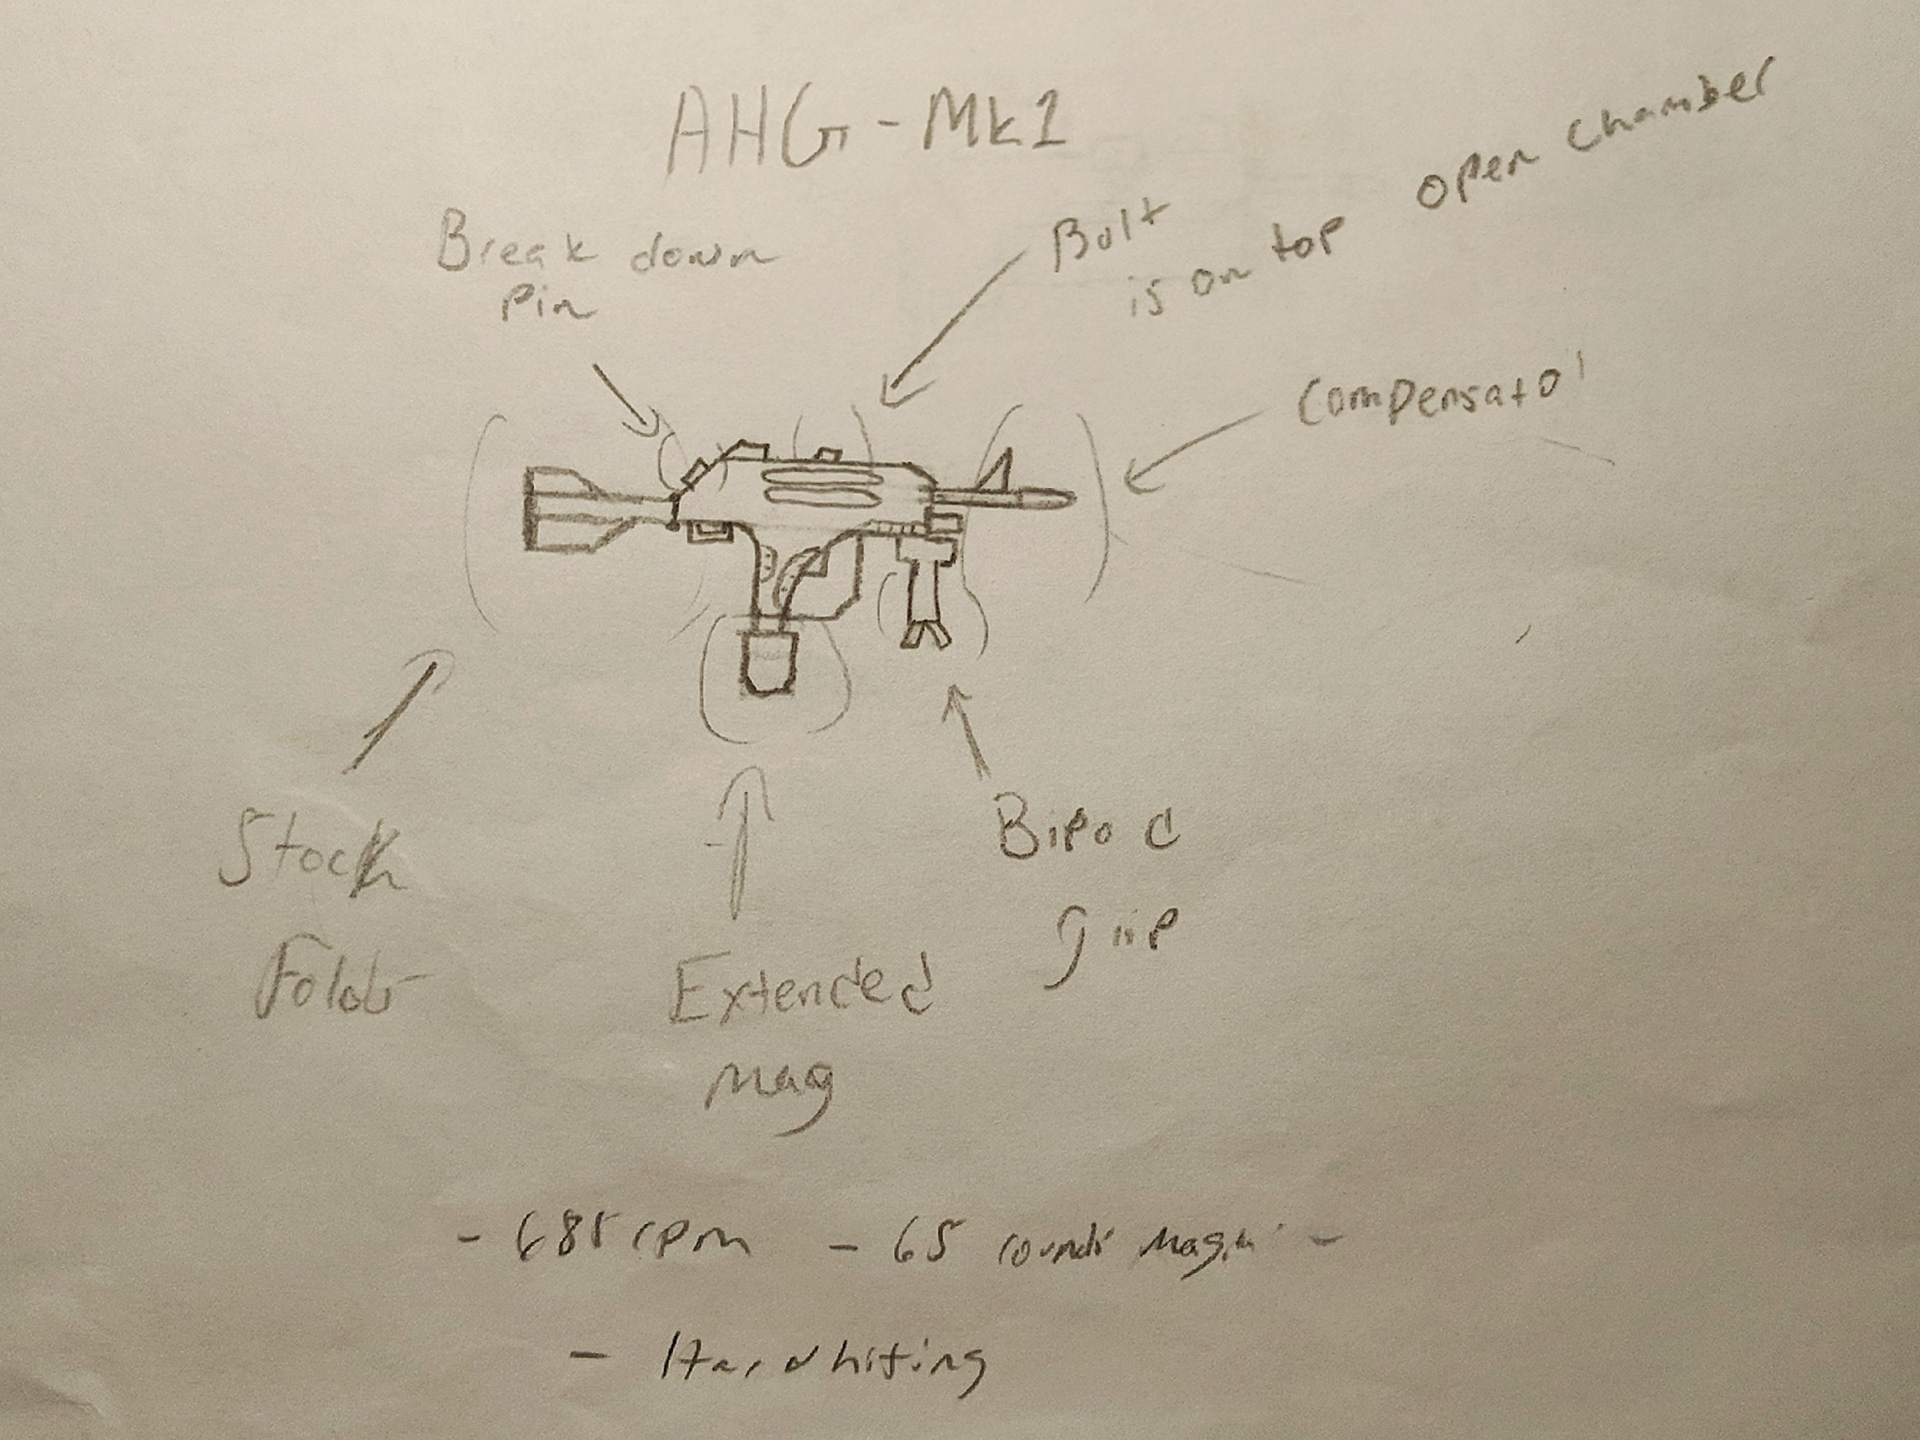 AHG-Mk1
Break down
Pin
Bolt
is on top open chamber
Compensator
Stock
Folds
Extended
Mag
Bipod
grip
- 685 rpm - 65 rounds Mag. -
- Hardhiting